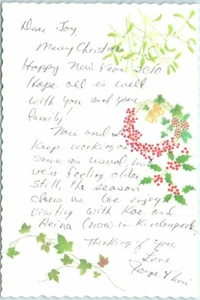 Dear Joy,
Merry Christmas
Happy New Year 2010
Hope all is well
with you and your
family!
and
keep working on
same as usual, but
we're feeling older
still, the season
as we enjoy
visiting with Kae and
Reina (now in Kindergarten)
Thinking of you,
Love